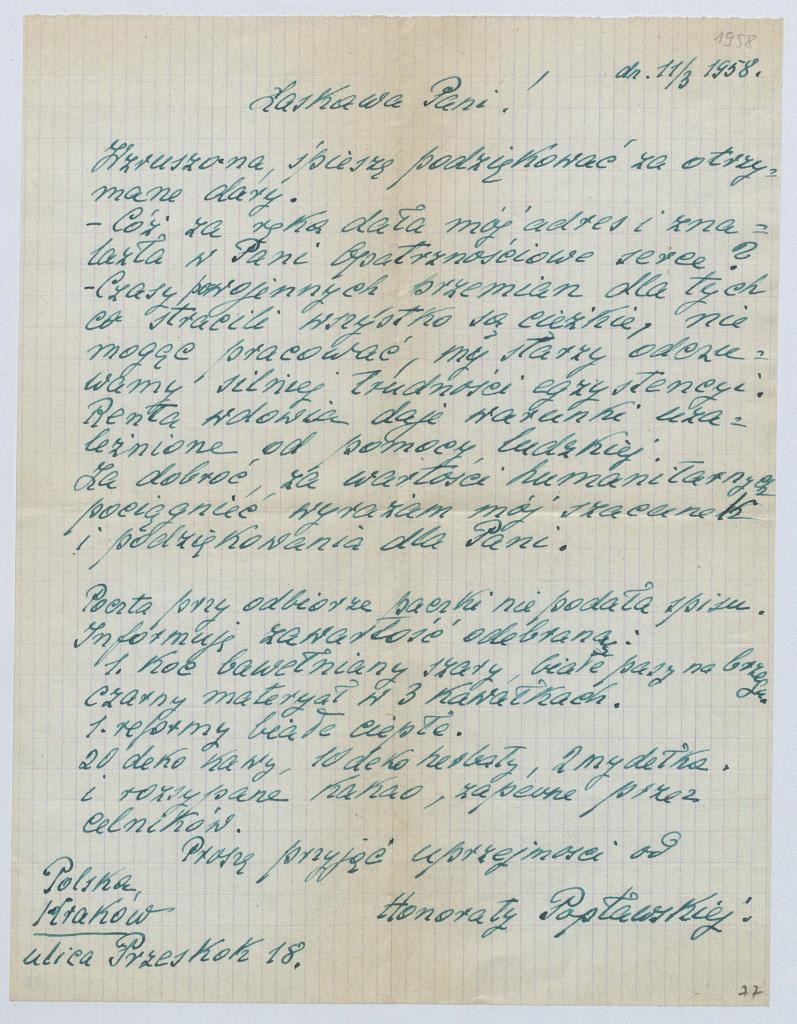 1958
dn. 11/3 1958.
Łaskawa Pani!
Wzruszona, śpieszę podziękować za otrzy=
mane dary.
- Cóż za ręka dała mój adres i zna=
lazła w Pani Opatrznościowe serce?
- Czasy powojennych przemian dla tych
co stracili wszystko są ciężkie, nie
mogąc pracować, my starzy odczu=
wamy silniej trudności egzystencyi.
Renta wdowia daje warunki uza=
leżnione od pomocy ludzkiej.
Za dobroć, za wartości humanitarnych
pociągnięć, wyrażam mój szacunek
i podziękowania dla Pani.
Poczta przy odbiorze paczki nie podała spisu.
Informuję zawartość odebraną:
1. Koc bawełniany szary, białe pasy na brzegu.
czarny materyał w 3 kawałkach.
1. reformy białe ciepłe.
20 deko kawy, 10 deko herbaty, 2 mydełka.
i rozsypane kakao, zapewne przez
celników.
Proszę przyjąć uprzejmości od
Honoraty Popławskiej.
Polska
Kraków
ulica Przeskok 18.
77